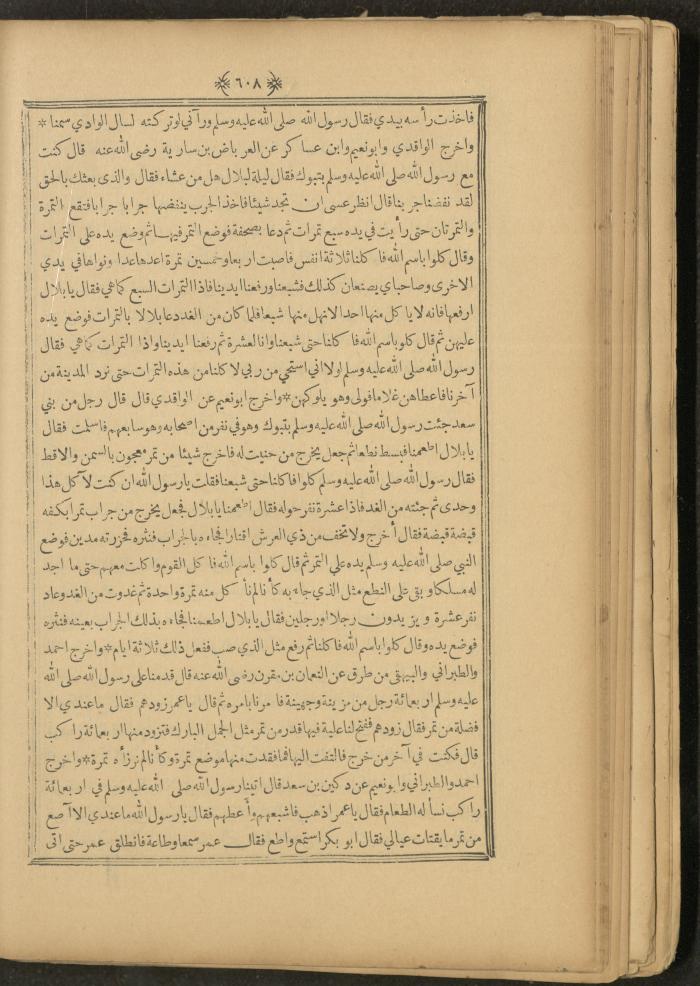 ﴿ ٦٠٨ ﴾
فاخذت رأسه بيدي فقال رسول الله صلى الله عليه وسلم ورآني لو تركته لسال الوادي سمنا *
واخرج الواقدي وابونعيم وابن عساكر عن العرباض بن سارية رضى الله عنه قال كنت
مع رسول الله صلى الله عليه وسلم بتبوك فقال ليلة لبلال هل من عشاء فقال والذى بعثك بالحق
لقد نفضنا جربنا قال انظر عسى ان تجد شيئا فاخذ الجرب ينفضها جرابا جرابا فتقع التمرة
والتمرتان حتى رأيت في يده سبع تمرات ثم دعا بصحفة فوضع التمر فيها ثم وضع يده على التمرات
وقال كلوا باسم الله فاكلنا ثلاثة انفس فاصبت اربعا وخمسين تمرة اعدها عدا ونواها في يدي
الاخرى وصاحباي يصنعان كذلك فشبعنا ورفعنا ايدينا فاذا التمرات السبع كما هي فقال يا بلال
ارفعها فانه لا يأكل منها احد الا نهل منها شبعا فلما كان من الغد دعا بلالا بالتمرات فوضع يده
عليهن ثم قال كلوا باسم الله فاكلنا حتى شبعنا وانا لعشرة ثم رفعنا ايدينا واذا التمرات كما هي فقال
رسول الله صلى الله عليه وسلم لولا اني استحي من ربي لاكلنا من هذه التمرات حتى نرد المدينة من
آخرنا فاعطاهن غلاما فولى وهو يلوكهن * واخرج ابونعيم عن الواقدي قال قال رجل من بني
سعد جئت رسول الله صلى الله عليه وسلم بتبوك وهو في نفر من اصحابه وهو سابعهم فاسلمت فقال
يا بلال اطعمنا فبسط نطعا ثم جعل يخرج من حنيت له فاخرج شيئا من تمر معجون بالسمن والاقط
فقال رسول الله صلى الله عليه وسلم كلوا فاكلنا حتى شبعنا فقلت يا رسول الله ان كنت لآكل هذا
وحدى ثم جئته من الغد فاذا عشرة نفر حوله فقال اطعمنا يا بلال فجعل يخرج من جراب تمرا بكفه
قبضة قبضة فقال أخرج ولا تخف من ذي العرش اقتارا فجاء بالجراب فنثره فحزرته مدين فوضع
النبي صلى الله عليه وسلم يده على التمر ثم قال كلوا باسم الله فاكل القوم واكلت معهم حتى ما اجد
له مسلكا وبقى على النطع مثل الذي جاء به كأنا لم نأكل منه تمرة واحدة ثم غدوت من الغد وعاد
نفر عشرة ويزيدون رجلا او رجلين فقال يا بلال اطعمنا فجاء بذلك الجراب بعينه فنثره
فوضع يده وقال كلوا باسم الله فاكلنا ثم رفع مثل الذي صب ففعل ذلك ثلاثة ايام * واخرج احمد
والطبراني والبيهقي من طرق عن النعمان بن مقرن رضى الله عنه قال قدمنا على رسول الله صلى الله
عليه وسلم اربعمائة رجل من مزينة وجهينة فامرنا بامره ثم قال يا عمر زودهم فقال ما عندي الا
فضلة من تمر فقال زودهم ففتح لنا علية فيها قدر من تمر مثل الجمل البارك فتزود منها اربعمائة راكب
قال فكنت في آخر من خرج فالتفت اليها فما فقدت منها موضع تمرة وكأنا لم نرزأه تمرة * واخرج
احمد والطبراني وابو نعيم عن دكين بن سعد قال اتينا رسول الله صلى الله عليه وسلم في اربعمائة
راكب نسأله الطعام فقال يا عمر اذهب فاشبعهم وأعطهم فقال يا رسول الله ما عندي الا آصع
من تمر ما يقتات عيالي فقال ابو بكر استمع واطع فقال عمر سمعا وطاعة فانطلق عمر حتى اتى